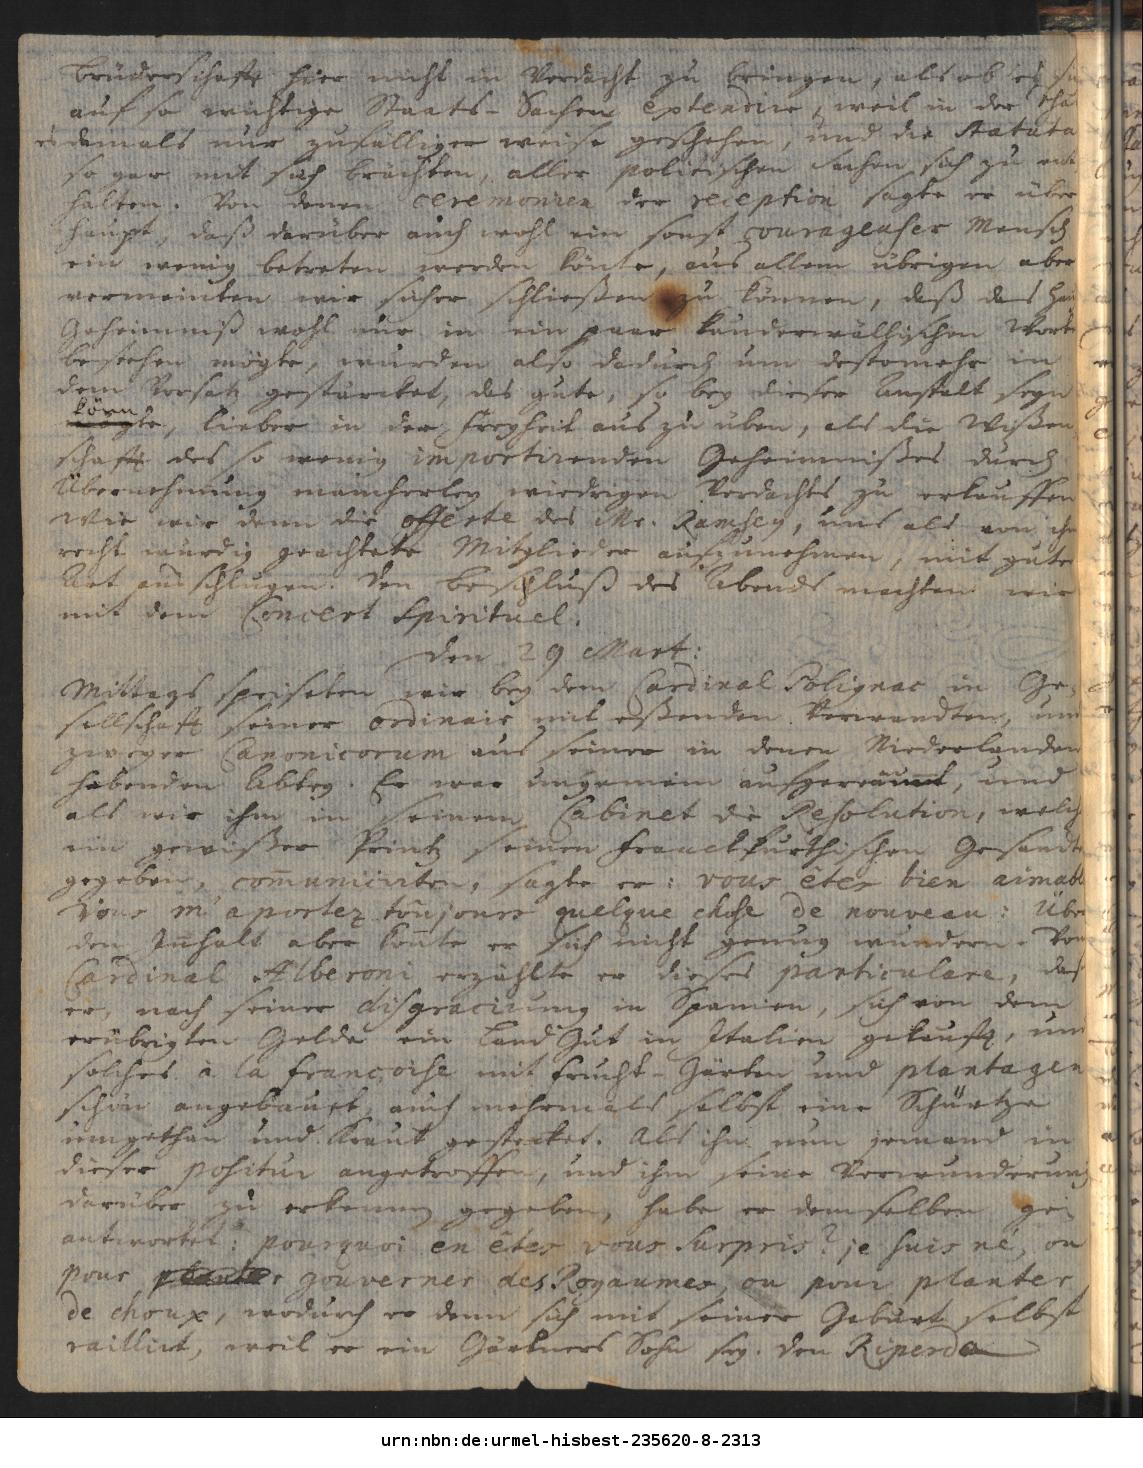 Brüderschafft hier nicht in Verdacht zu bringen, als ob es sich
auf so wichtige Staats-Sachen extendire, weil in der That
es damals nur zufälliger weise geschehen, und die Statuta
so gar mit sich brächten, aller politischen Sachen sich zu ent
halten. Von denen ceremonien der reception sagte er über
haupt, daß darüber auch wohl ein sonst courageuser Mensch
ein wenig betreten werden könte, aus allem übrigen aber
vermeinten wir sicher schließen zu können, daß das
Geheimniß wohl nur in ein paar kauderwälschischen Worte
bestehen mögte, wurden also dadurch um destomehr in
dem Vorsatz gestärcket, das gute, so bey dieser Anstalt seyn
könnte, lieber in der Freyheit aus zu üben, als die Wißen
schafft des so wenig importirenden Geheimnißes durch
Übernehmung mancherley wiedrigen Verdachts zu erkauffen
Wie wir denn die offerte des Mr. Ramsey, uns als von ihm
recht würdig geachtete Mitglieder aufzunehmen, mit guter
Art ausschlugen. Den Beschluß des Abends machten wir
mit dem Concert Spirituel.
den 29 Mart:
Mittags speiseten wir bey dem Cardinal Polignac in Ge-
sellschafft seiner ordinair mit eßenden Verwandten, und
zweyer Canonicorum aus seiner in denen Niederlanden
habenden Abtey. Er war ungemein aufgeräumt, und
als wir ihm in seinem Cabinet die Resolution, welche
ein gewißer Printz seinen Franckfurthischen Gesandten
gegeben, com̄unicirten, sagte er: vous êtes bien aimable
Vous m'aportez toûjours quelque chose de nouveau: Über
den Inhalt aber konte er sich nicht genug wundern. Vom
Cardinal Alberoni erzählte er dieses particulare, daß
er, nach seiner disgracirung in Spanien, sich von dem
erübrigten Gelde ein Land Gut in Italien gekaufft, und
solches à la françoise mit Frucht-Gärten und plantagen
schön angebauet, auch mehrmals selbst eine Schürtze
umgethan und Kraut gestecket. Als ihn nun jemand in
dieser positur angetroffen, und ihm seine Verwunderung
darüber zu erkennen gegeben, habe er demselben ge-
antwortet: pourquoi en êtes vous surpris? je suis né, ou
pour gouverner des Royaumes, ou pour planter
de choux, wodurch er denn sich mit seiner Geburt selbst
raillirt, weil er ein Gärtners Sohn sey. Den Riperda
urn:nbn:de:urmel-hisbest-235620-8-2313